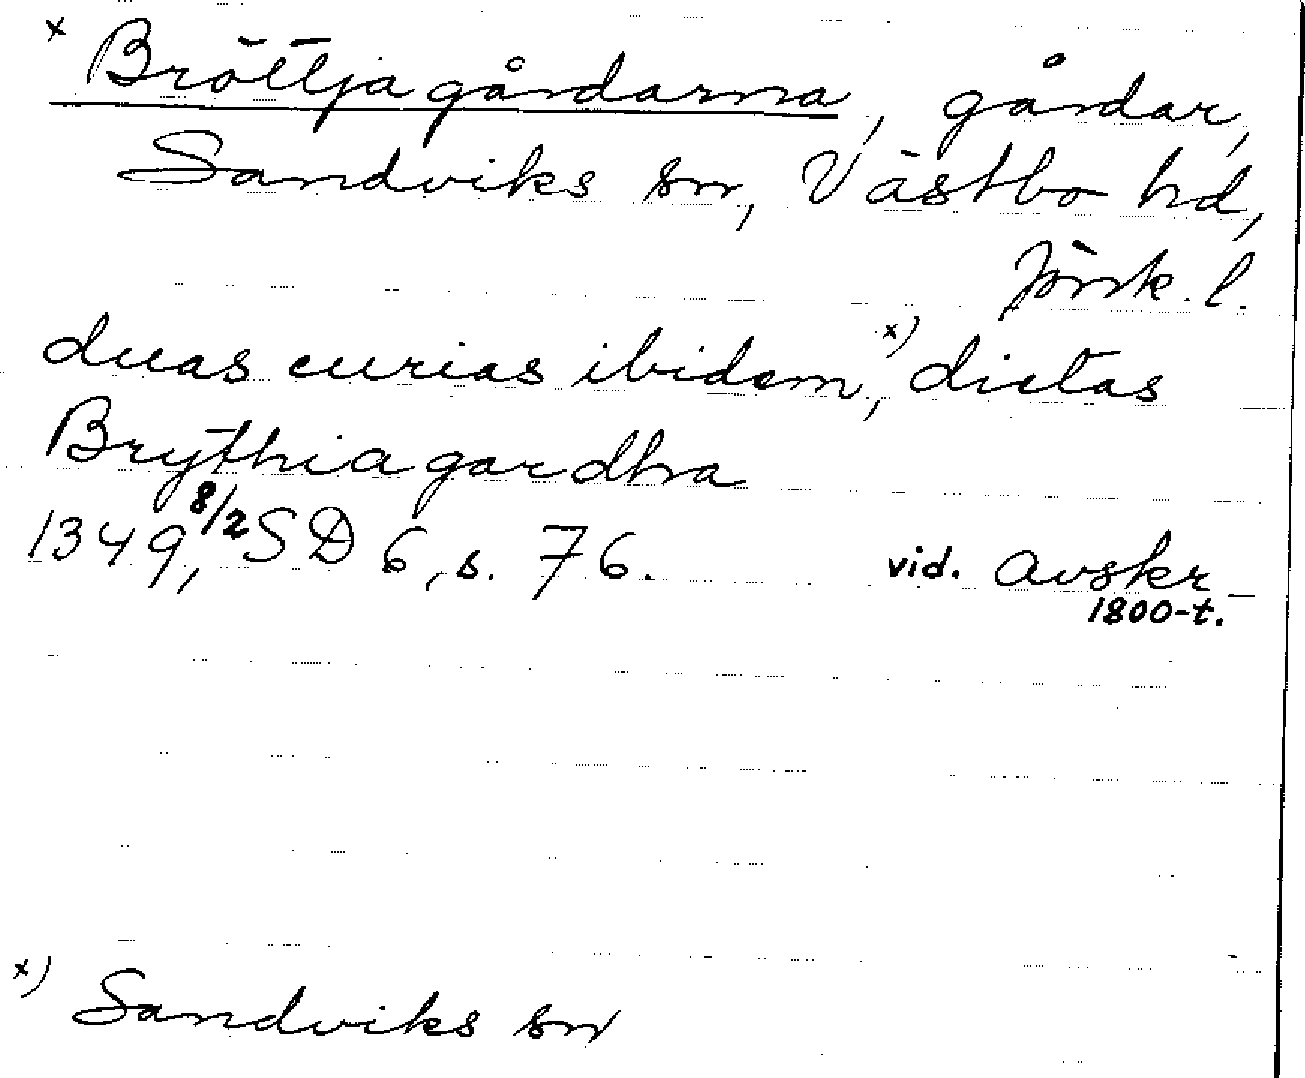 x Bröttjagårdarna, gårdar,
Sandviks sn, Västbo hd,
Jönk. l.
duas curias ibidem,x) dictas
Brythiagardha
1349, 8/2 SD 6, s. 76. vid. avskr
1800-t.
x) Sandviks sn